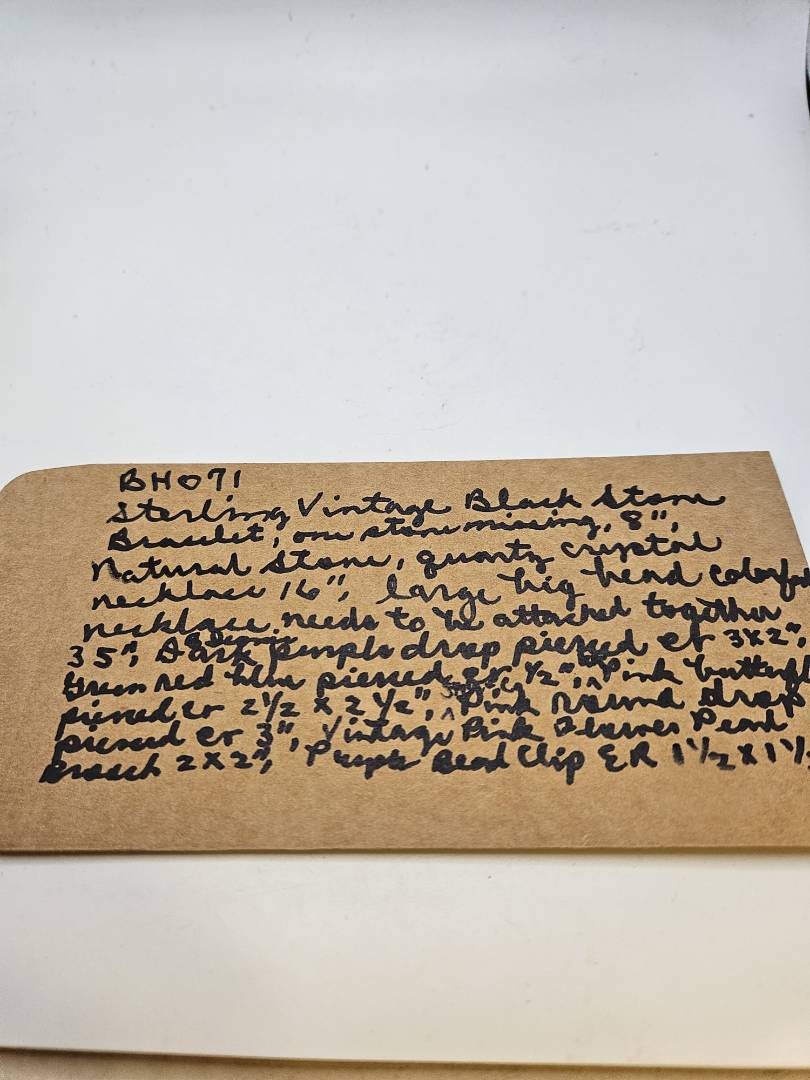 BH071
Sterling Vintage Black Stone
Bracelet, one stone missing, 8",
Natural Stone, quartz crystal
necklace 16", large big bead colorful
necklace needs to be attached together
35", Dark purple drop pierced er 3x2",
Green red blue pierced er 1/2", Pink butterfl
pierced er 2 1/2 x 2 1/2", Pink round drop
pierced er 3", Vintage Pink Flower Pearl
Broach 2x2", Purple Bead Clip ER 1 1/2 x 1 1/2